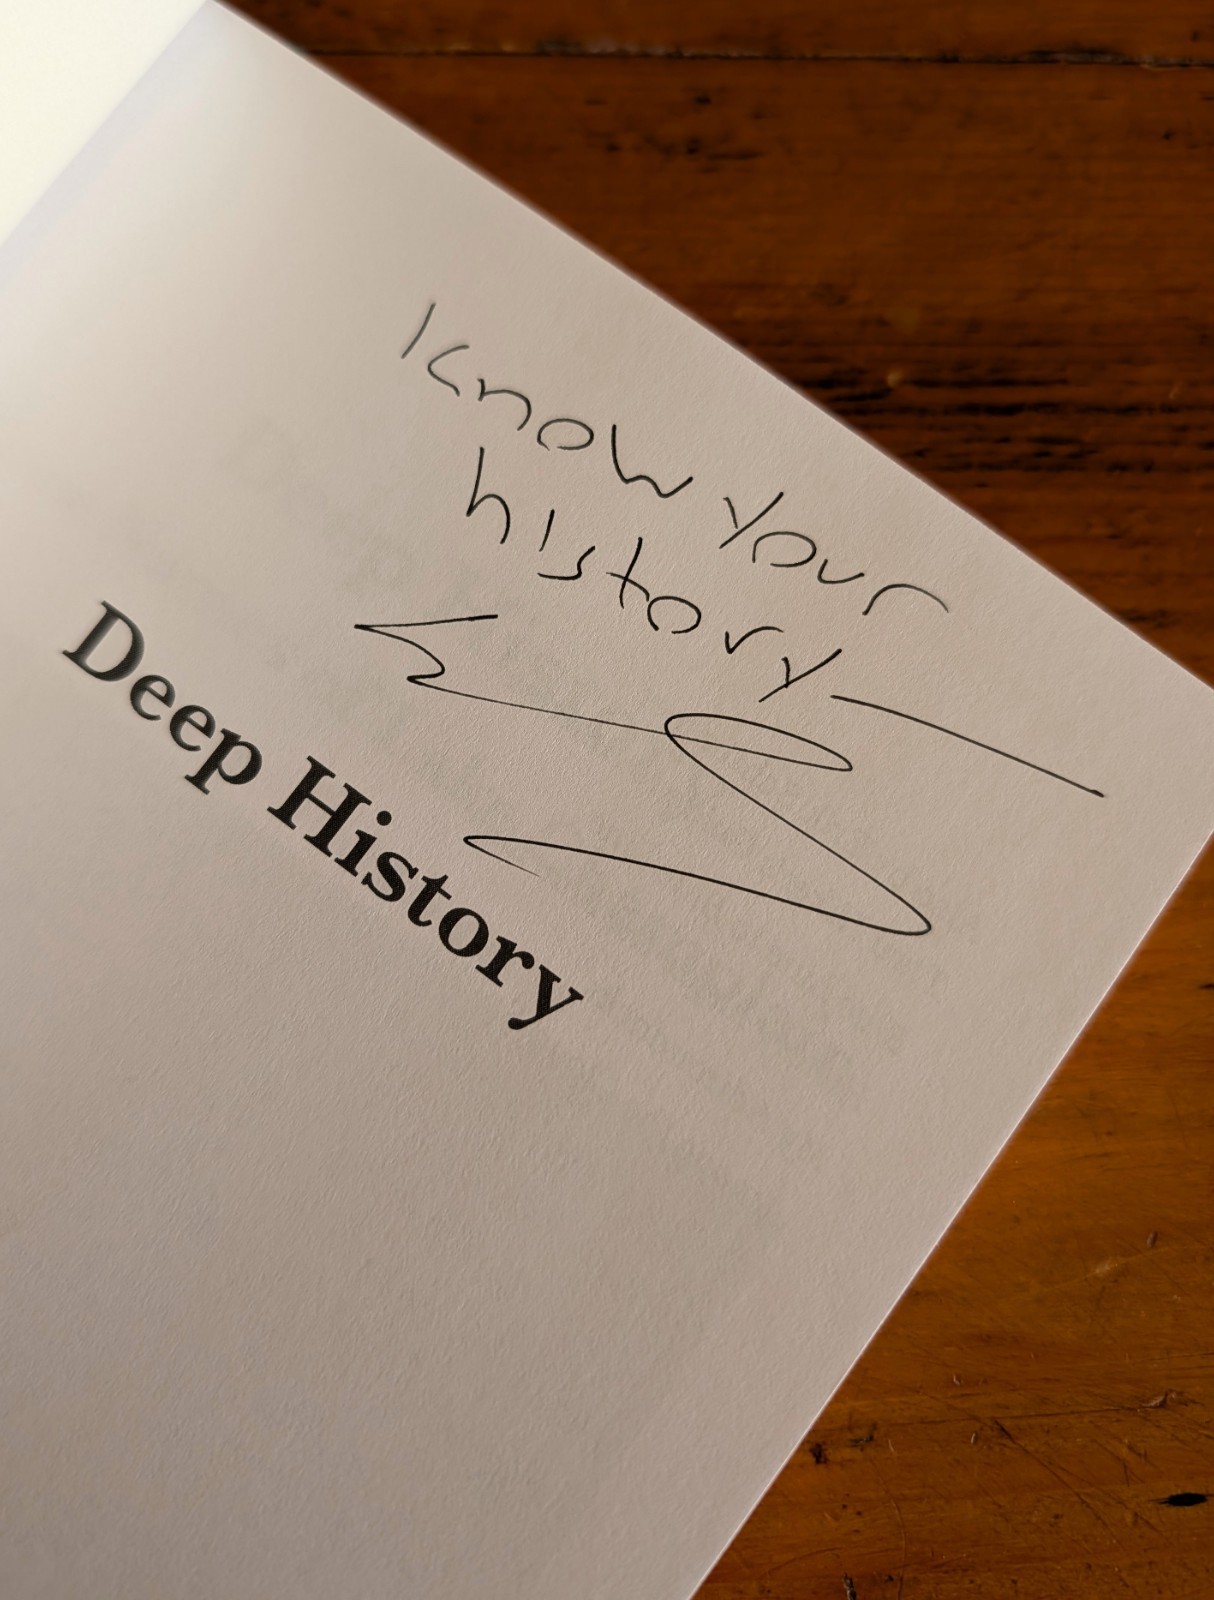 Know your
history
Deep History